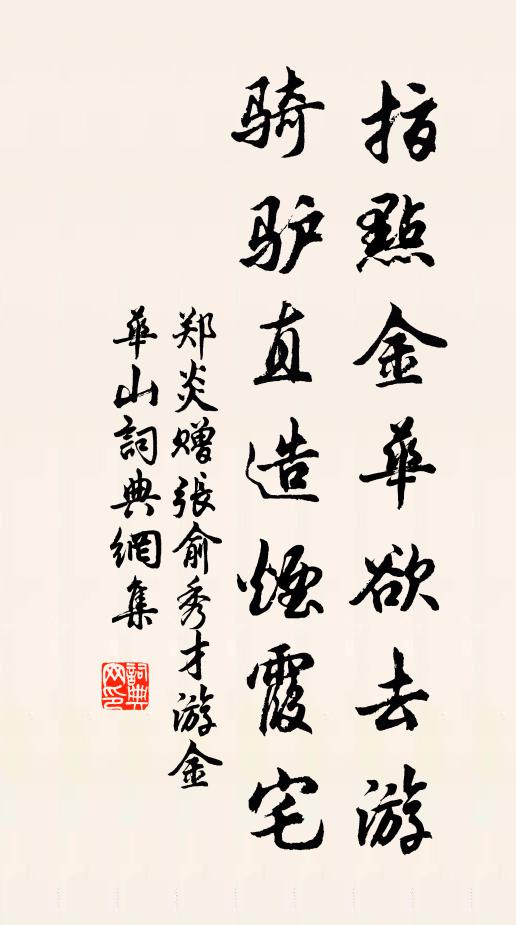 指點金華欲去游
骑驴直造煙霞宅
郑炎赠張俞秀才游金
華山詞典網集
詞典网印